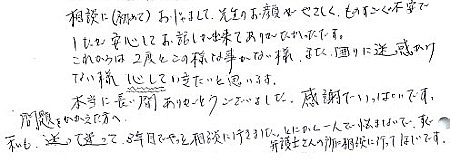 相談に(初めて)おじゃまして、先生のお顔がやさしく、ものすごく不安で
したが安心してお話し出来てありがたかったです。
これからは2度とこの様な事がない様、また、回りに迷感かけ
ない様 心していきたいと思います。
本当に長い間ありがとうございました。感謝でいっぱいです。
問題をかかえた方へ
私も、迷って迷って、3年目でやっと相談に行きました。とにかく一人で悩まないで、すぐ
弁護士さんの所に相談に行ってほしいです。